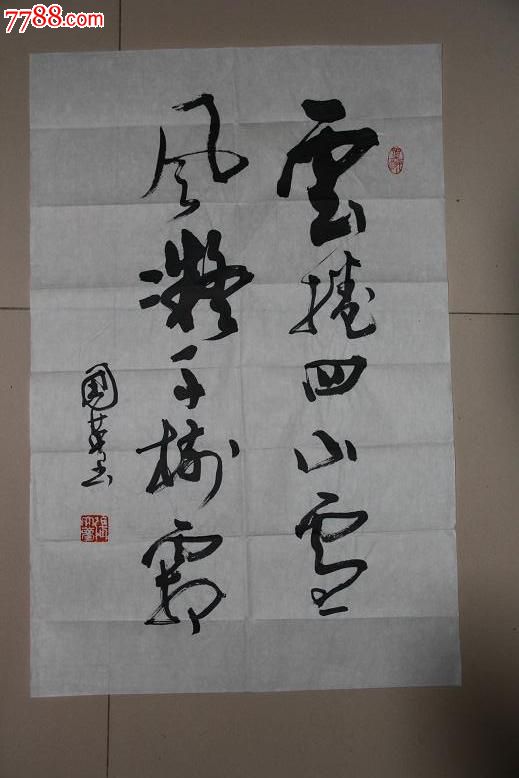 7788.com
雲捲四山雪
風凝千樹霜
國英书